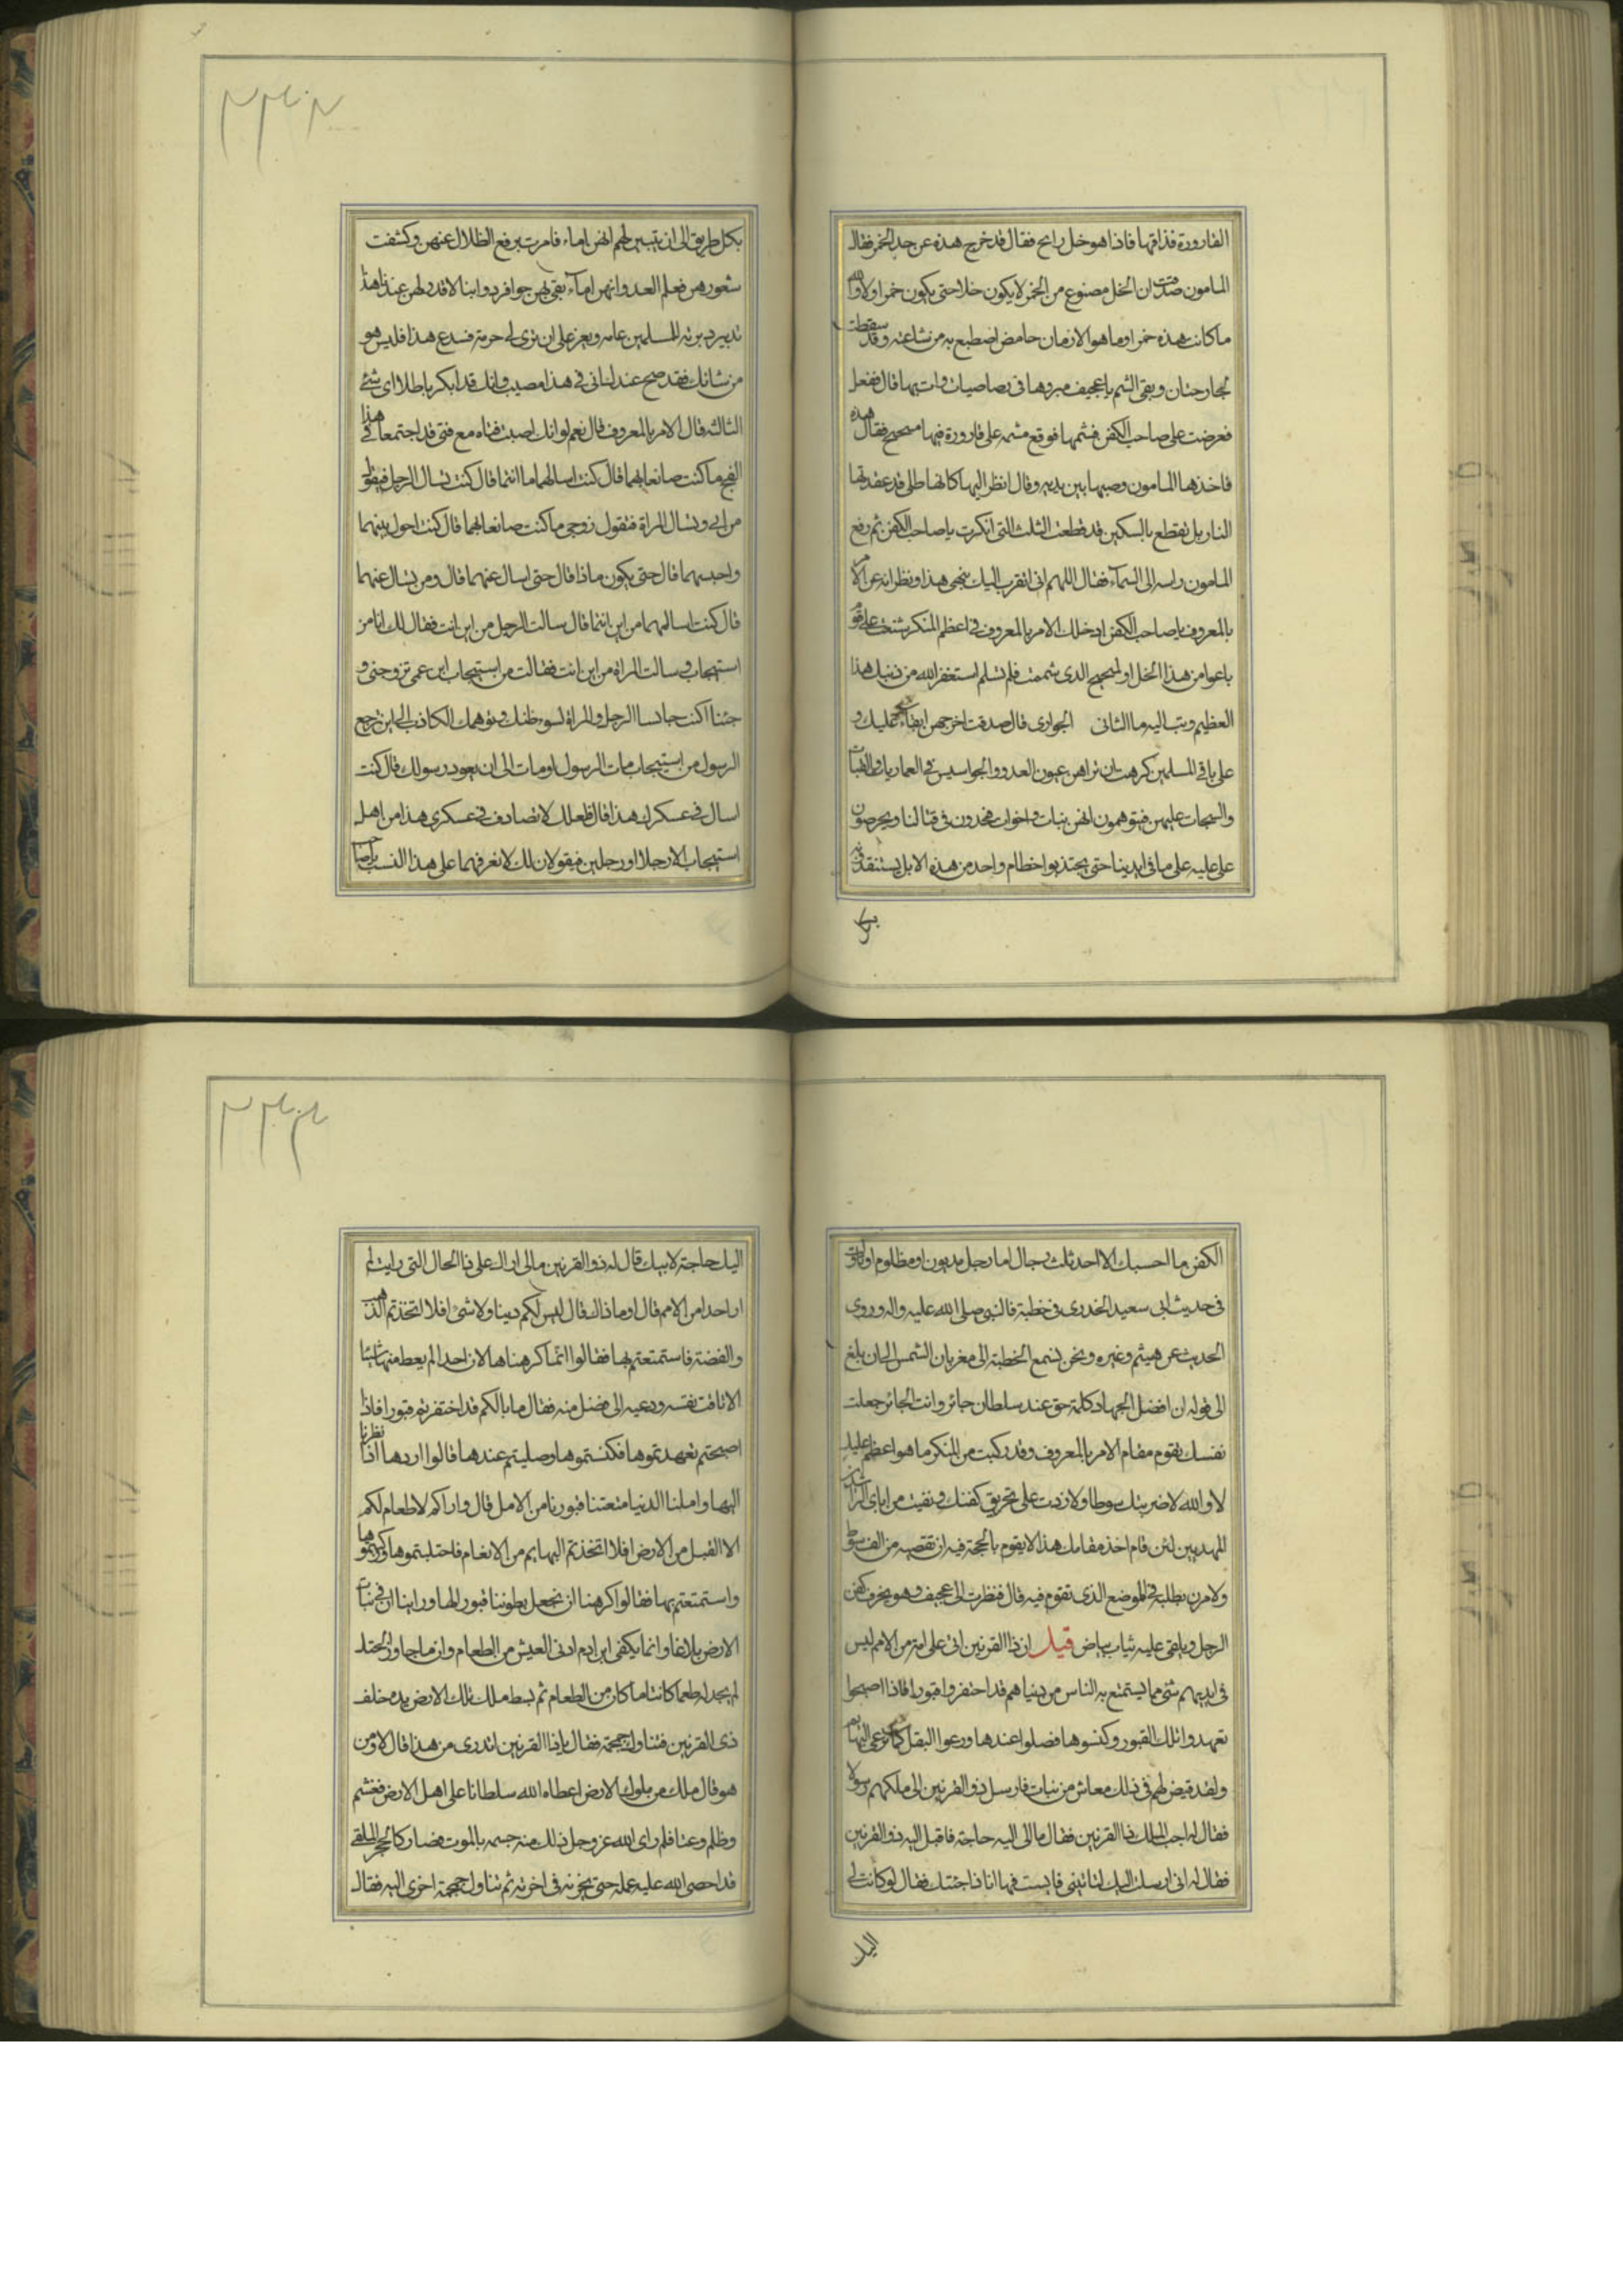 القارورة فذاقها فاذا هو خل رايح فقال قد خرج هذه عن حد الخمر فقال
المامون صدقت ان الخل مصنوع من الخمر لا يكون خلا حتى يكون خمرا ولا والله
ما كانت هذه خمرا وما هو الا رمان حامض اصطبع به من شاعته وقد سقطت
الجارحتان وبقى الشم يا عجيف صيروها فى رصاصيات وات بها قال ففعل
فعرضت على صاحب الكفن فشمها فوقع مشمه على قارورة فيها مسحيح فقال هذه
فاخذها المامون وصبها بين يديه وقال انظر اليها كانها طلى قد عقدتها
النار بل تقطع بالسكين قد قطعت الثلث التى انكرت يا صاحب الكفن ثم رفع
المامون راسه الى السماء فقال اللهم انى اتقرب اليك بنهى هذا ونظرائه عن الامر
بالمعروف يا صاحب الكفن ادخلك الامر بالمعروف فى اعظم المنكر شنعت على قوم
باعوا من هذا الخل او لمسحيح الذى شممت فلم تسلم استغفر الله من ذنبك هذا
العظيم وتب اليه ما الثانى الجوارى قال صدقت اخرجهن ابقاء عليك و
على باقى المسلمين كرهت ان تراهن عيون العدو والجواسيس فى العماريات والقباب
والسجات عليهن فيتوهمون انهن بنات واخوات فيجدون فى قتالنا ويحرصون
على عليه على ما فى ايدينا حتى يجتذبوا خطام واحد من هذه الابل يستنقذونه
بكل
بكل طريق الى ان يتبين لهم انهن اماء فامرت برفع الظلال عنهن وكشفت
شعورهن فعلم العدو انهن اماء نقى بهن حوافر دوابنا لا قدر لهن عندنا هذا
تدبير دبرته للمسلمين عامه ويعز على ان ترى لى حرمة فدع هذا فليس هو
من شانك فقد صح عندك انى فى هذا مصيب وانك قد انكر باطلا اى شئ
الثالثه قال الامر بالمعروف قال نعم لو انك اصبت فتاه مع فتى قد اجتمعا فى هذا
الفج ما كنت صانعا بهما قال كنت اسالهما ما انتما قال كنت تسال الرجل فيقول
من ابى وتسال المراة فتقول زوجى ما كنت صانعا بهما قال كنت احول بينهما
واحبسهما قال حتى يكون ماذا قال حتى اسال عنهما قال ومن تسال عنهما
قال كنت اسالهما من اين انتما قال سالت الرجل من اين انت فقال لك انا من
استيجاب وسالت المراة من اين انت فقالت من استيجاب ابن عمى تزوجنى و
جئنا اكنت حابسا الرجل والمراة لسوء ظنك وتوهمك الكاذب الى ان يرجع
الرسول من استيجاب مات الرسول او مات الى ان يعود رسولك قال كنت
اسال فى عسكرك هذا قال فلعلك لا تصادف فى عسكرى هذا من اهل
استيجاب الا رجلا او رجلين فيقولان لك لا نعرفهما على هذا النسب يا صاحب
الكفن ما احسبك الا احد ثلث رجال اما رجل مديون او مظلوم او تاولت
فى حديث ابى سعيد الخدرى فى خطبة قال النبى صلى الله عليه واله وروى
الحديث عن هيثم وغيره ونحن نسمع الخطبة الى مغربان الشمس الى ان بلغ
الى قوله ان افضل الجهاد كلمة حق عند سلطان جائر وانت الجائر جعلت
نفسك تقوم مقام الامر بالمعروف وقد ركبت من المنكر ما هو اعظم عليك
لا والله لا ضربتك سوطا ولا زدت على تحريق كفنك ونفيت من اباى الراشدين
المهديين لئن قام احد مقامك هذا لا يقوم بالحجة فيه ان نقصته من الف سوط
ولامرن بطلبه فى الموضع الذى تقوم فيه قال فنظرت الى عجيف وهو يخرق كفن
الرجل ويلقى عليه ثياب بياض قيل ان ذا القرنين اتى على امة من الامم ليس
فى ايديهم شئ مما يستمتع به الناس من دنياهم قد احتفروا قبورا فاذا اصبحوا
تعهدوا تلك القبور وكنسوها فصلوا عندها ورعوا البقل كما ترعى البهايم
ولقد قيض لهم فى ذلك معاش من نبات فارسل ذو القرنين الى ملكهم رسولا
فقال له اجب الملك ذا القرنين فقال مالى اليه حاجة فاقبل اليه ذو القرنين
فقال له انى ارسلت اليك لتاتينى فابيت فها انا ذا جئتك فقال لو كانت لى
اليك
اليك حاجة لاتيتك قال له ذو القرنين مالى اراك على ذا الحال التى رايت لم
ار احدا من الامم قال او ما ذاك قال ليس لكم دينا ولا شئ افلا اتخذتم الذهب
والفضة فاستمتعتم بها فقالوا انما كرهناها لان احدا لم يعط منها شيئا
الا تاقت نفسه ودعيه الى فضل منه فقال ما بالكم قد احتفرتم قبورا فاذا
اصبحتم تعهدتموها فكنستموها وصليتم عندها قالوا اردها اذا نظرنا
اليها واملنا الدنيا منعتنا قبورنا من الامل قال واراكم لا طعام لكم
الا البقل من الارض افلا اتخذتم البهايم من الانعام فاحتلبتموها وركبتموها
واستمتعتم بها فقالوا كرهنا ان نجعل بطوننا قبورا لها وراينا ان فى نبات
الارض بلاغا وانما يكفى ابن ادم ادنى العيش من الطعام وان ما جاوز الحنك
لم يجد له طعما كائنا ما كان من الطعام ثم بسط ملك تلك الارض يده خلف
ذى القرنين فتناول جمجمة فقال يا ذا القرنين اتدرى من هذا قال لا ومن
هو قال ملك من ملوك الارض اعطاه الله سلطانا على اهل الارض فغشم
وظلم وعتا فلم راى الله عز وجل ذلك منه جسمه بالموت فصار كالحجر الملقى
قد احصى الله عليه عمله حتى يجزيه فى اخرته ثم تناول جمجمة اخرى اليه فقال